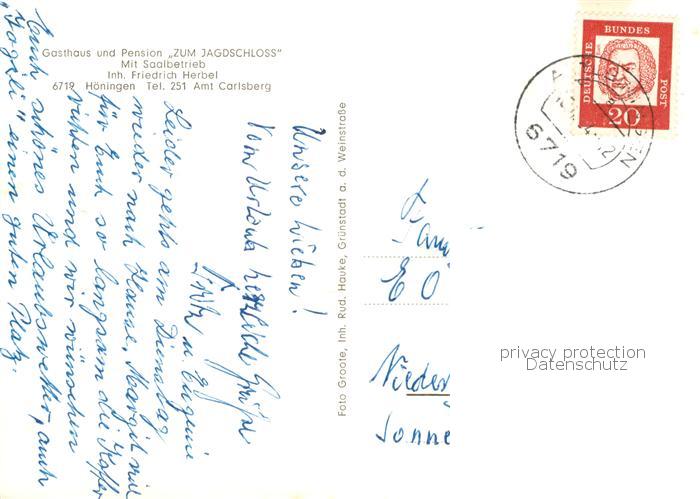 Gasthaus und Pension „ZUM JAGDSCHLOSS"
Mit Saalbetrieb
Inh. Friedrich Herbel
6719 Höningen Tel. 251 Amt Carlsberg
Unsere Lieben!
Vom Urlaub herzliche Grüße
Fritz u Eugenie
Leider gehts am Dienstag
wieder nach Hause, Margit will
für Euch so langsam die Koffer
richten und wir wünschen
Euch schönes Urlaubswetter, auch
„Joggili" einen guten Platz.
Foto Groote, Inh. Rud. Hauke, Grünstadt a. d. Weinstraße
DEUTSCHE BUNDES POST
20
6719
Fam
E O
Nieder
Sonne
privacy protection
Datenschutz